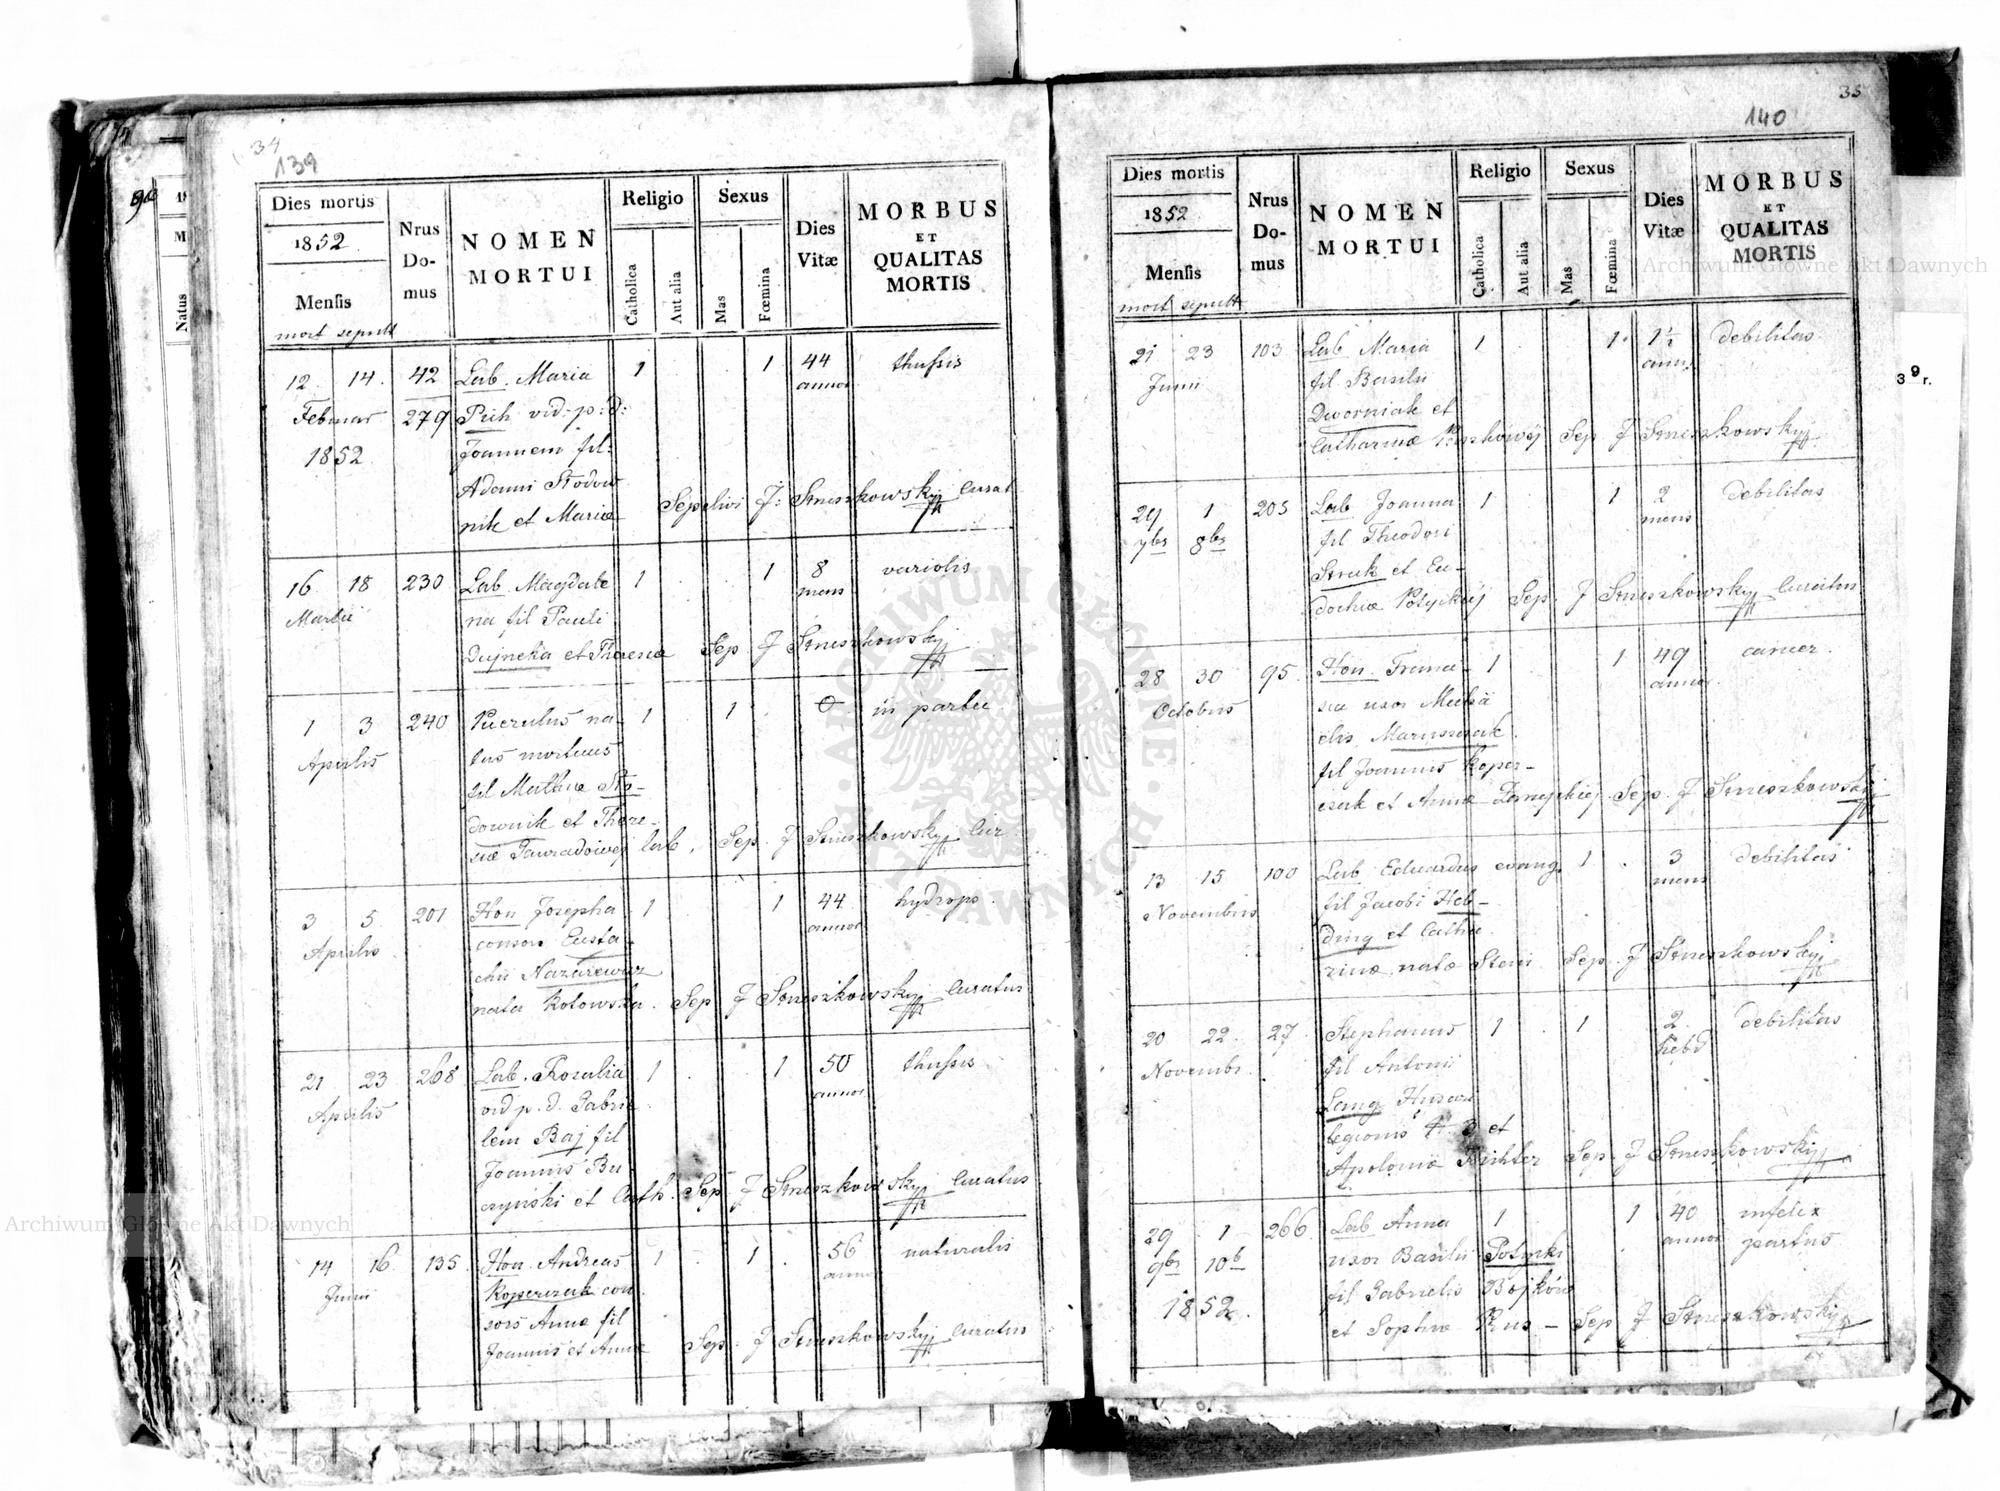 34
139
Dies mortis
1852
Mensis
mort sepult
Nrus Do-mus
NOMEN MORTUI
Religio
Catholica
Aut alia
Sexus
Mas
Fœmina
Dies Vitæ
MORBUS ET QUALITAS MORTIS
12 14 42 Lab. Maria 1 1 44 thussis
Februar 279 Puh vid: p: d: annor
1852 Joannem fil:
Adami Stodow
nik et Mariæ Sepelivi J: Struszkowskyj Curat
16 18 230 Lab. Magdale 1 1 8 variolis
Martii na fil Pauli mens
Dujneka et Theresiæ Sep. J Struszkowskyj
1 3 240 Puerulus na- 1 1 0 in partu
Aprilis tus mortuus
fil Mathiæ Sto-
downik et There-
siæ lab. Sep. J Struszkowskyj Cur
3 5 201 Hon Josepha 1 1 44 hydrops
Aprilis consors Eusta- annor
chii Nazarewicz
nata Kotowska. Sep J Struszkowskyj Curatus
21 23 268 Lab. Rosalia 1 1 50 thussis
Aprilis vid p. d. Gabrie annor
lem Baj fil
Joannis Bu-
czynski et Cath. Sep. J Struszkowskyj Curatus
14 16 135 Hon. Andreas 1 1 56 naturalis
Junii Koperczak con annor
sors Annæ fil
Joannis et Annæ Sep. J Struszkowskyj Curatus
35
140
Dies mortis
1852
Mensis
mort sepult
Nrus Do-mus
NOMEN MORTUI
Religio
Catholica
Aut alia
Sexus
Mas
Fœmina
Dies Vitæ
MORBUS ET QUALITAS MORTIS
21 23 103 Lab Maria 1 1 1½ debilitas
Junii fil Basilii anni
Dworniak et
Catharinæ Sep J Struszkowskyj
29 1 205 Lab Joanna 1 1 2 debilitas
7bris 8bris fil Theodori mens
Struk et Eu-
dochiæ Potyckiej Sep. J Struszkowskyj Curatus
28 30 95 Hon. Franci- 1 1 49 cancer
Octobris sca uxor Micha annor
elis
fil Joannis Koper-
czak et Annæ Sep. J Struszkowskyj
13 15 100 Lab Eduardus evang. 1 3 debilitas
Novembris fil Jacobi Heb- mens
ding et Catha
rinæ natæ Stein Sep. J Struszkowskyj
20 22 27 Stephanus 1 1 2 debilitas
Novembr. fil Antonii hebd
Lang Husar
legionis et
Apoloniæ Richter Sep. J Struszkowskyj
29 1 266 Lab Anna 1 1 40 infelix
9bris 10b uxor Basilii Potycki annor partus
1852. fil Gabrielis Bojków
et Sophiæ Rus - Sep J Struszkowskyj
39r.
ARCHIWUM GŁÓWNE AKT DAWNYCH
Archiwum Główne Akt Dawnych
Archiwum Główne Akt Dawnych
Natus